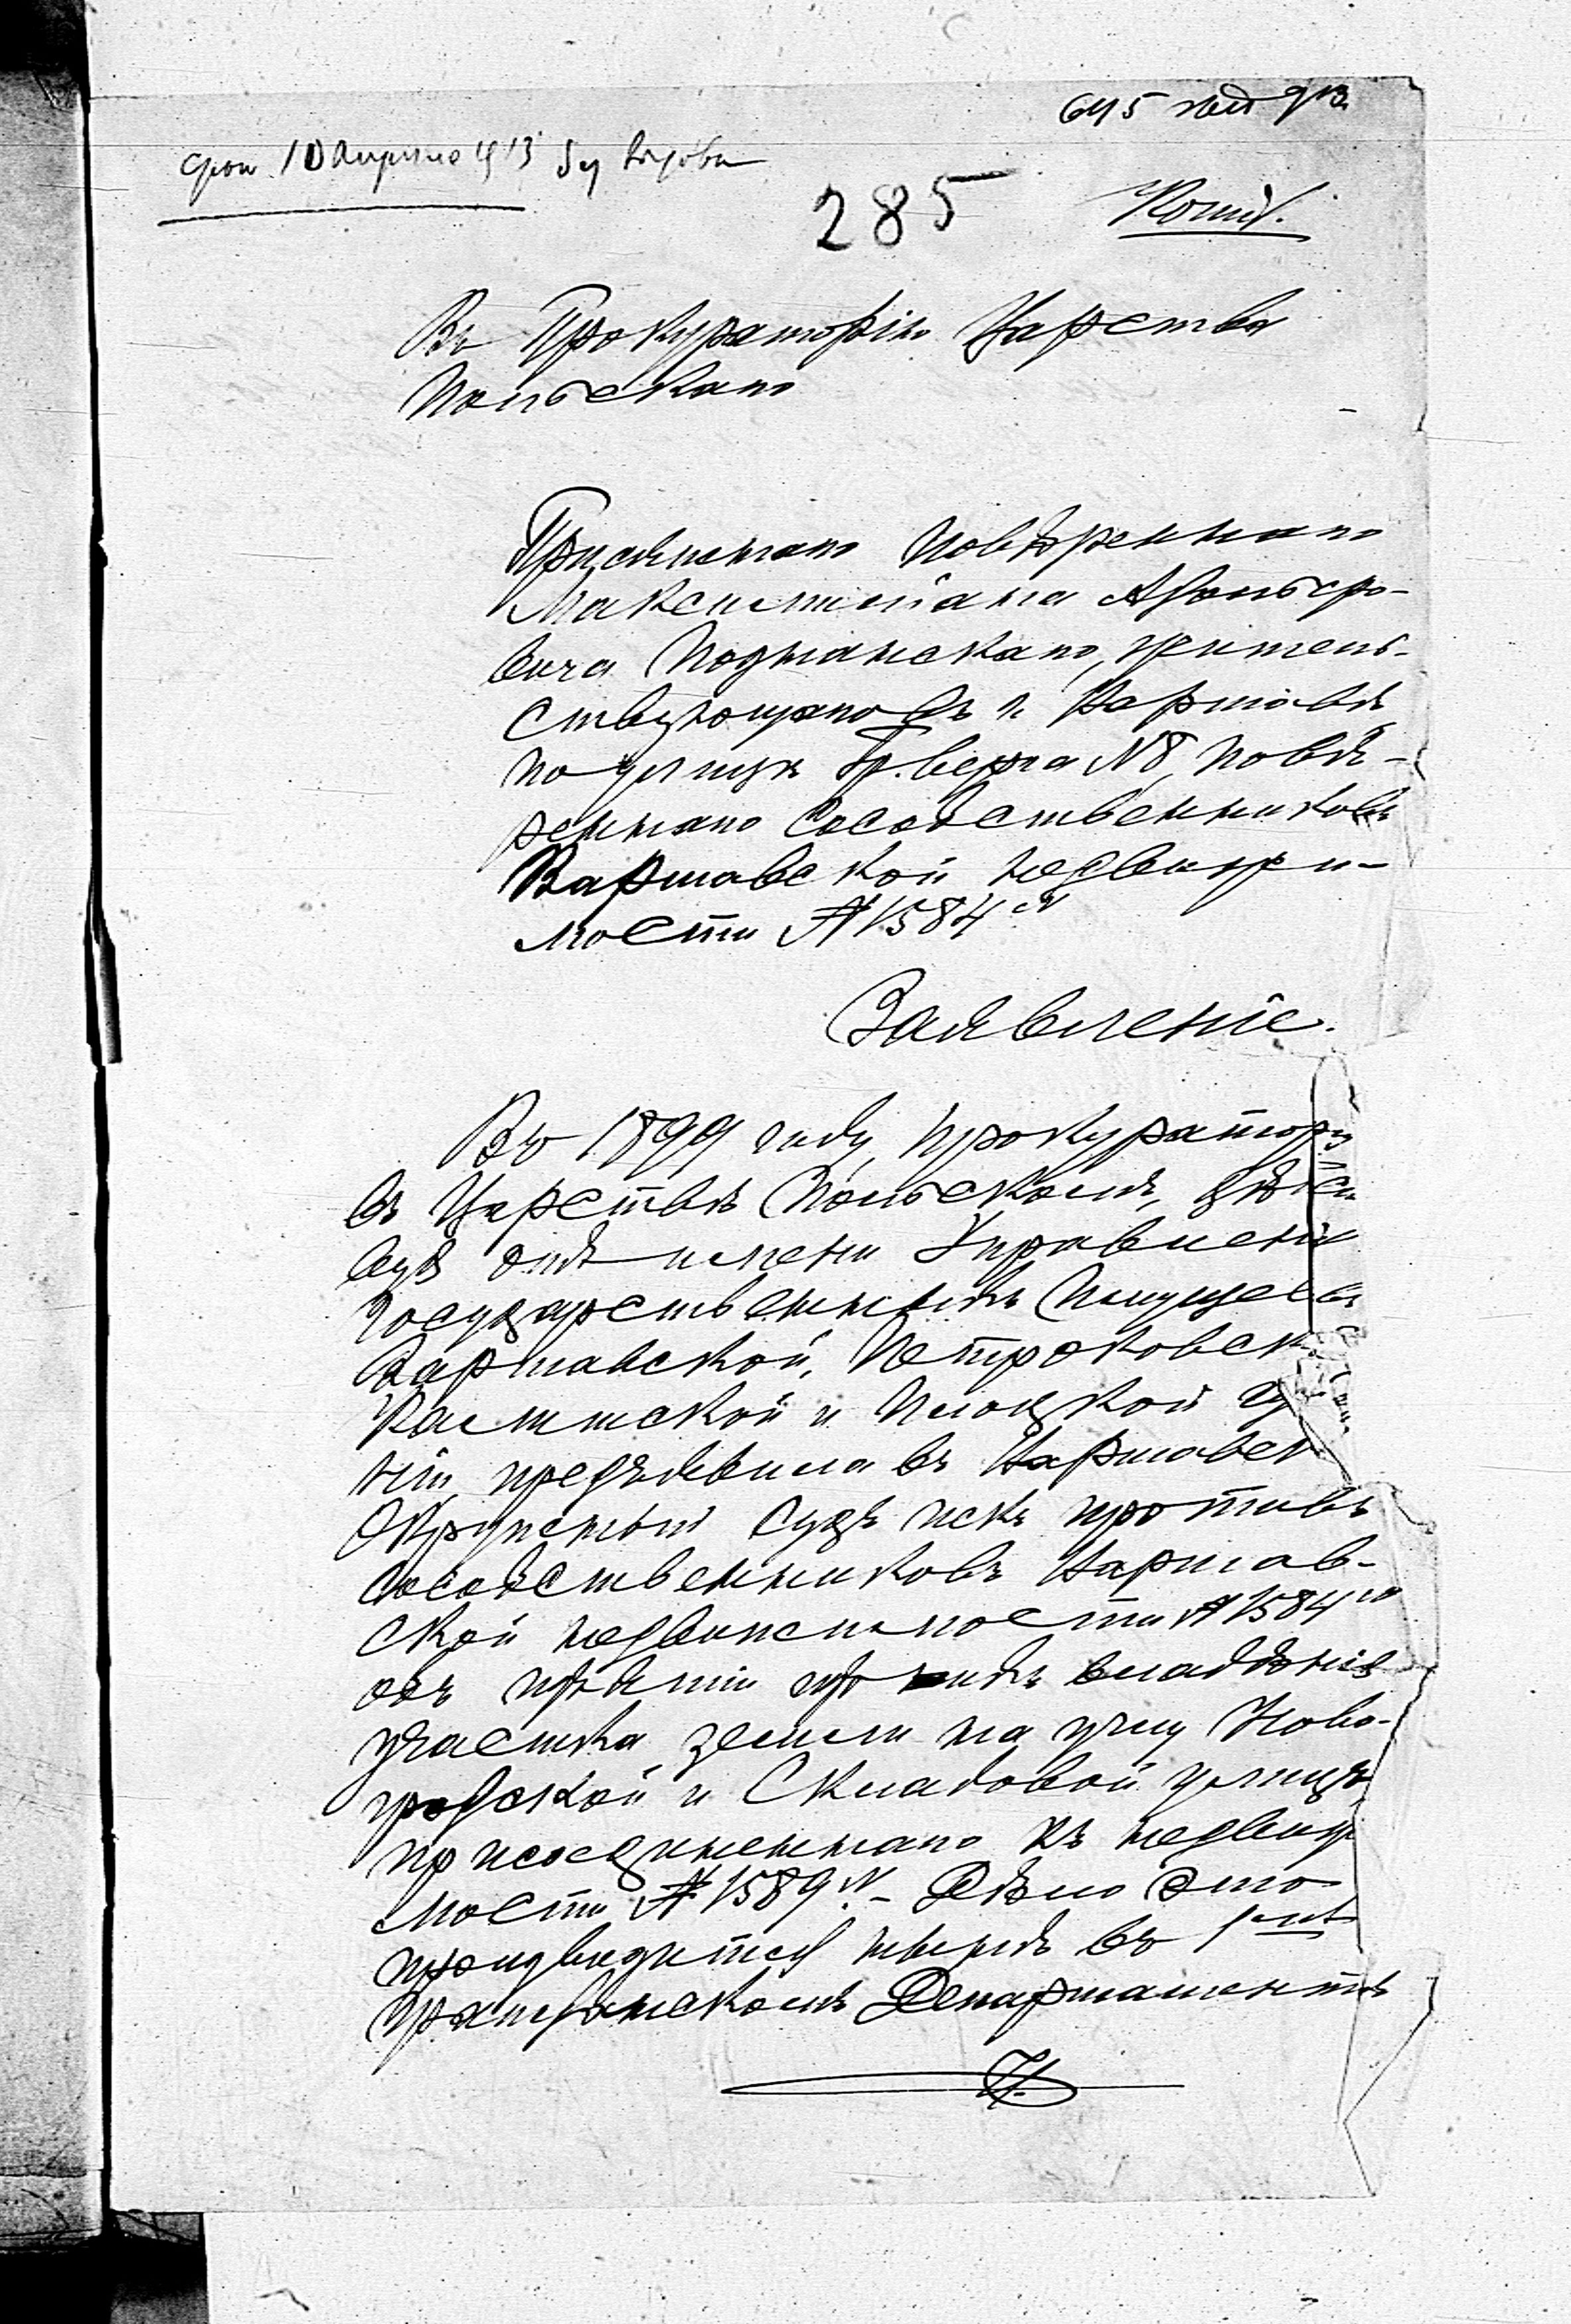 285
Копія.
Въ Прокураторію Царства
Польскаго
Присяжнаго Повѣреннаго
Максимиліана Адольфо-
вича Познанскаго, житель-
ствующаго въ г. Варшавѣ
по улицѣ Гр. Берга №8, повѣ-
реннаго Сособственниковъ
Варшавской недвижи-
мости № 1584
Заявленіе.
Въ 1899 году, Прокуратор
въ Царствѣ Польскомъ, дѣйст
вуя отъ имени Управленія
Государственныхъ Имуществъ
Варшавской, Петроковск
Калишской и Плоцкой Гу
ній предъявила въ Варшавск
Окружный Судъ искъ противъ
Сособственниковъ Варшав-
ской недвижимости № 1584
объ изъятіи изъ ихъ владѣнія
участка земли на углу Ново-
гродской и Складовой улицъ
присоединеннаго къ недвиж
мости № 1589 - Дѣло это
производится нынѣ въ 1омъ
Гражданскомъ Департаментѣ